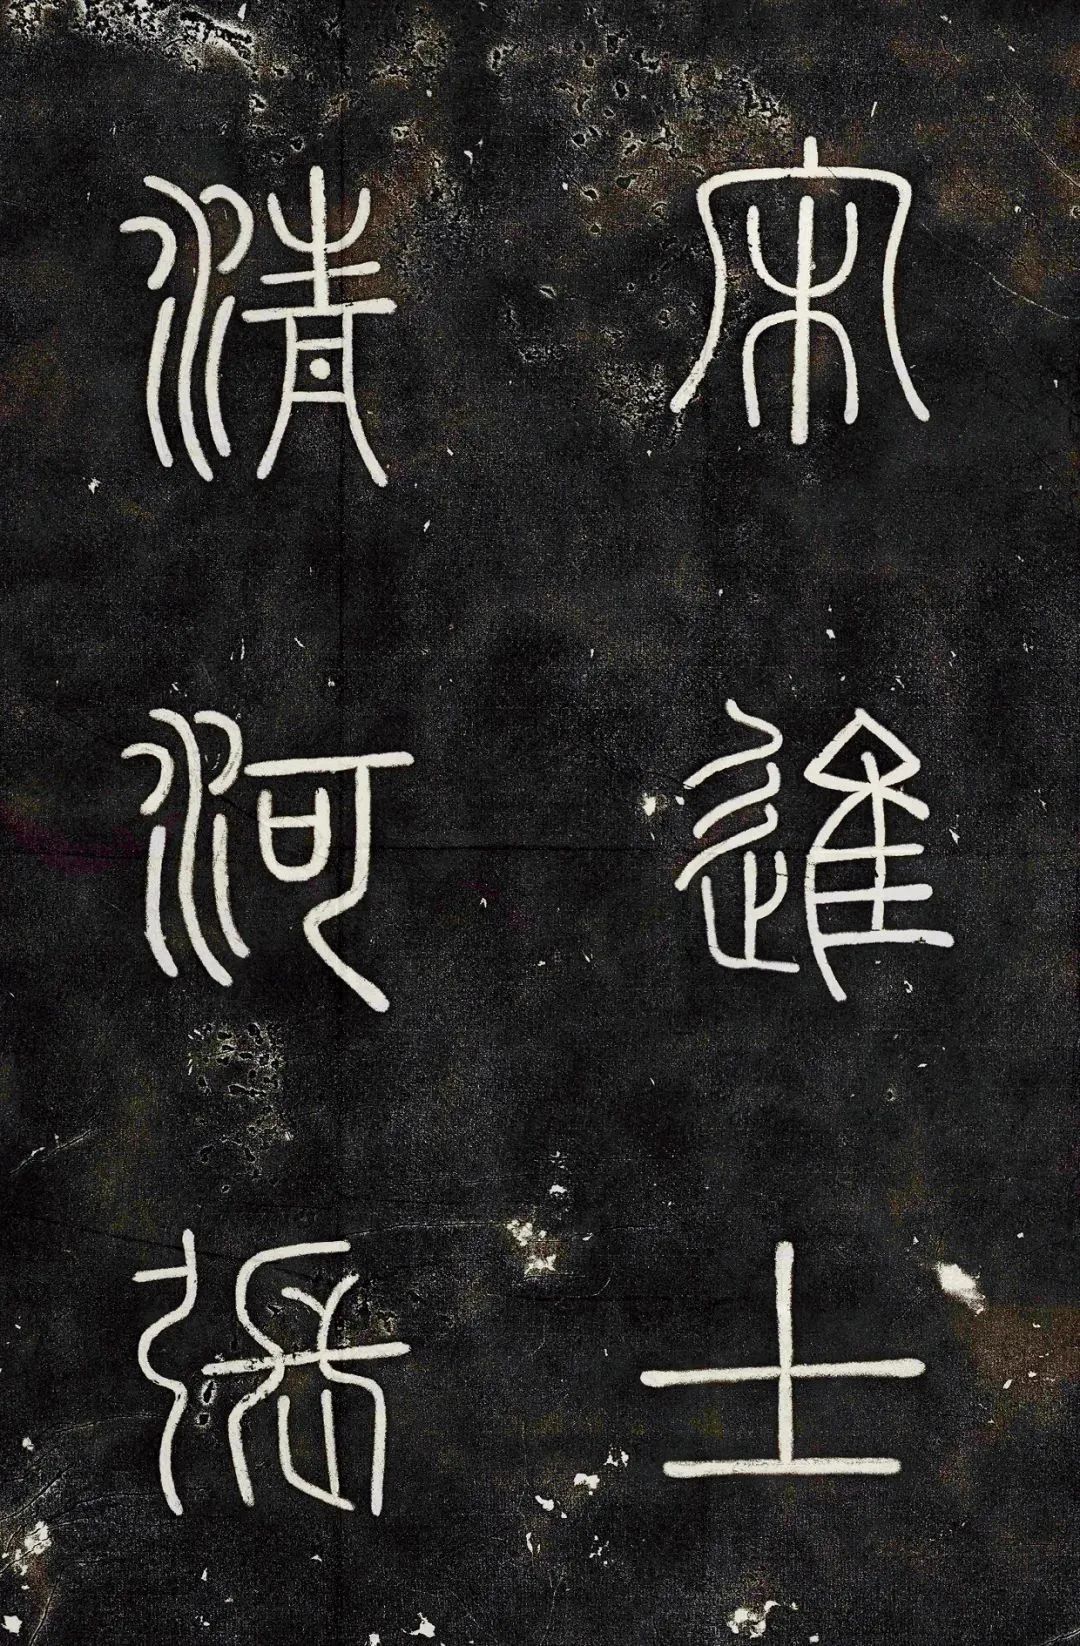 宋進士
清河張